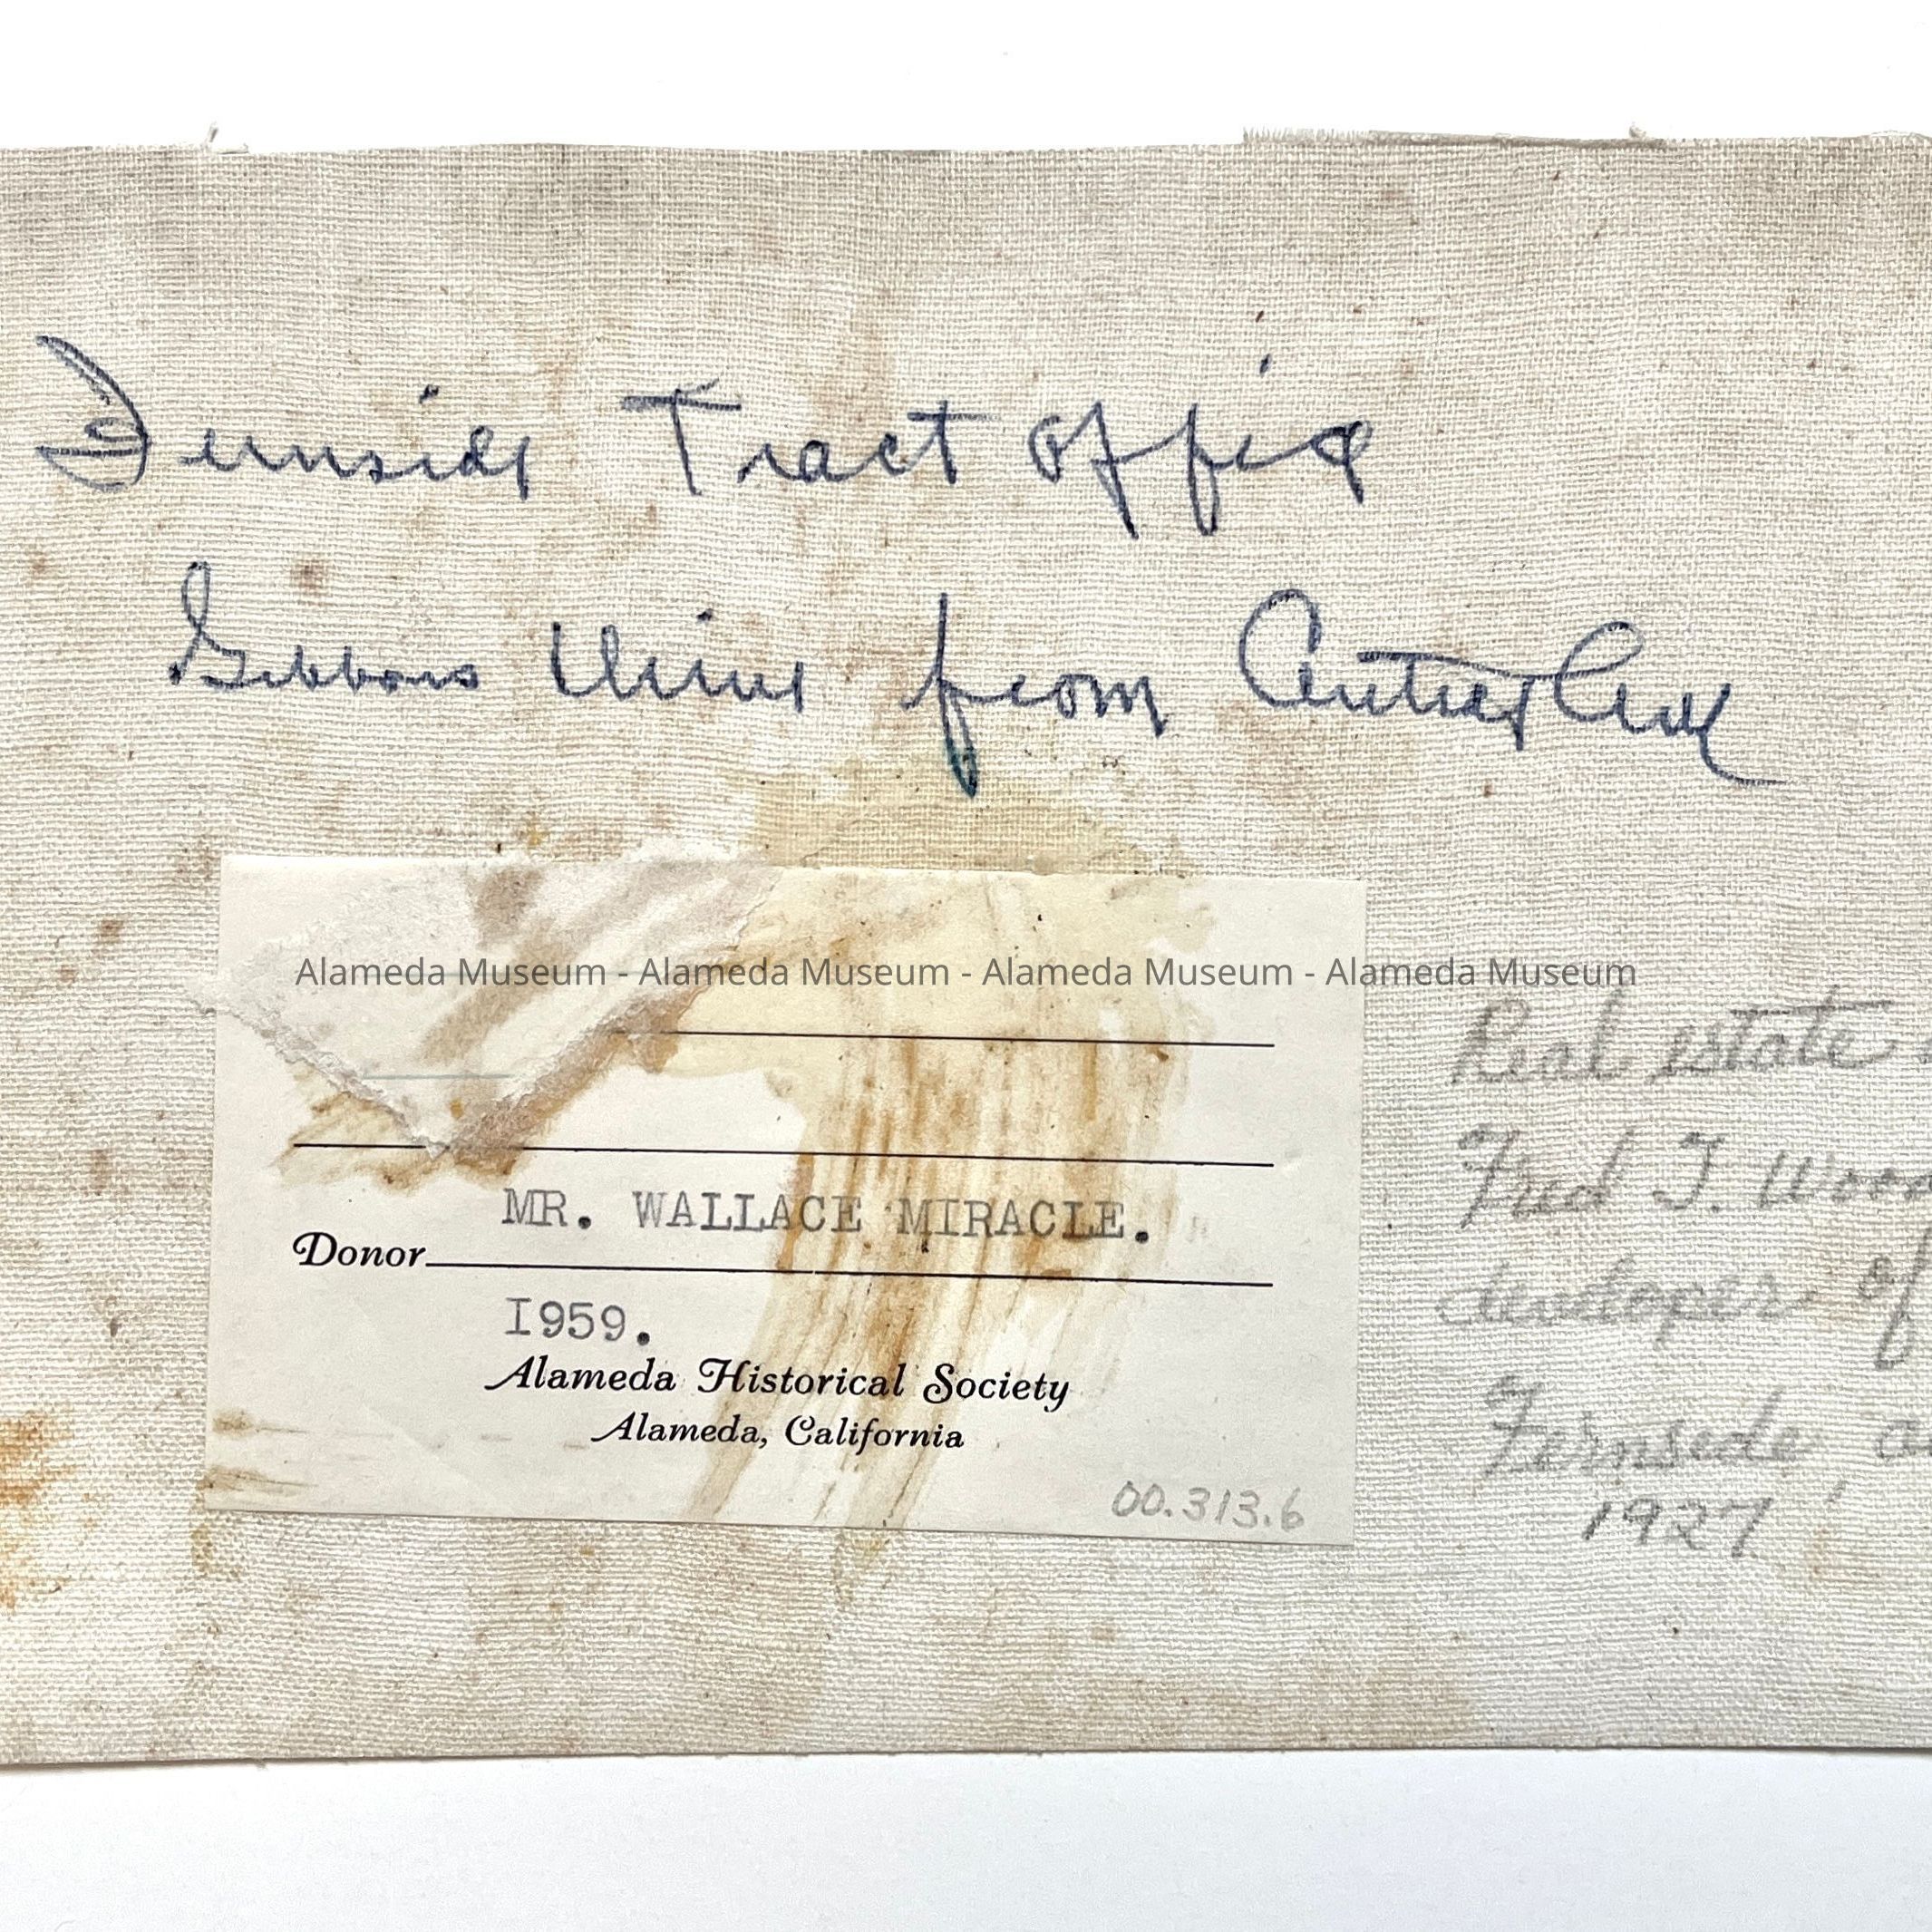 Fernside Tract Office
Gibbons Drive from Central Ave
Alameda Museum - Alameda Museum - Alameda Museum - Alameda Museum
MR. WALLACE MIRACLE.
Donor
I959.
Alameda Historical Society
Alameda, California
00.313.6
Real estate
Fred T. Wood
developer of
Fernside,
1927